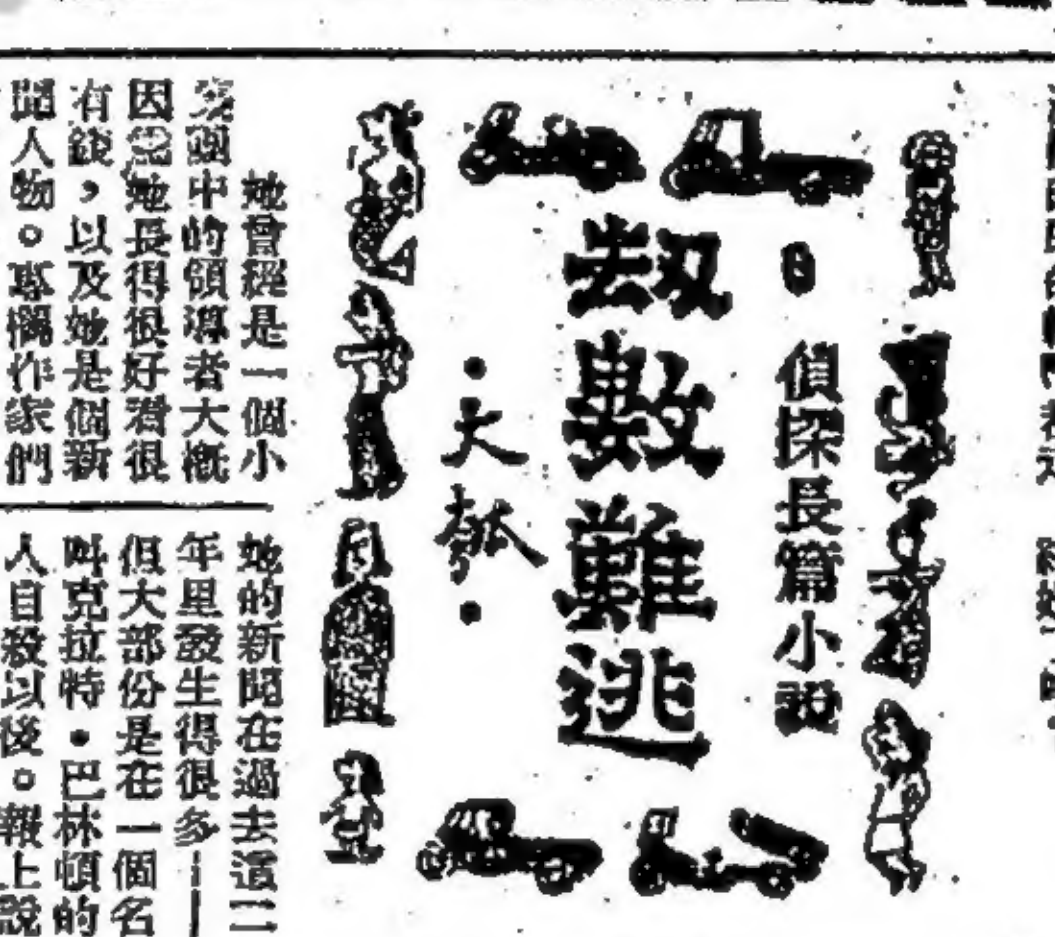 偵探長篇小說
刼數難逃
·大瓠·
她曾經是一個小
團中的領導者大概
因為她長得很好看很
有錢，以及她是個新
聞人物。專欄作家們
她的新聞在過去這二
年里發生得很多——
但大部份是在一個名
叫克拉特·巴林頓的
人自殺以後。報上說